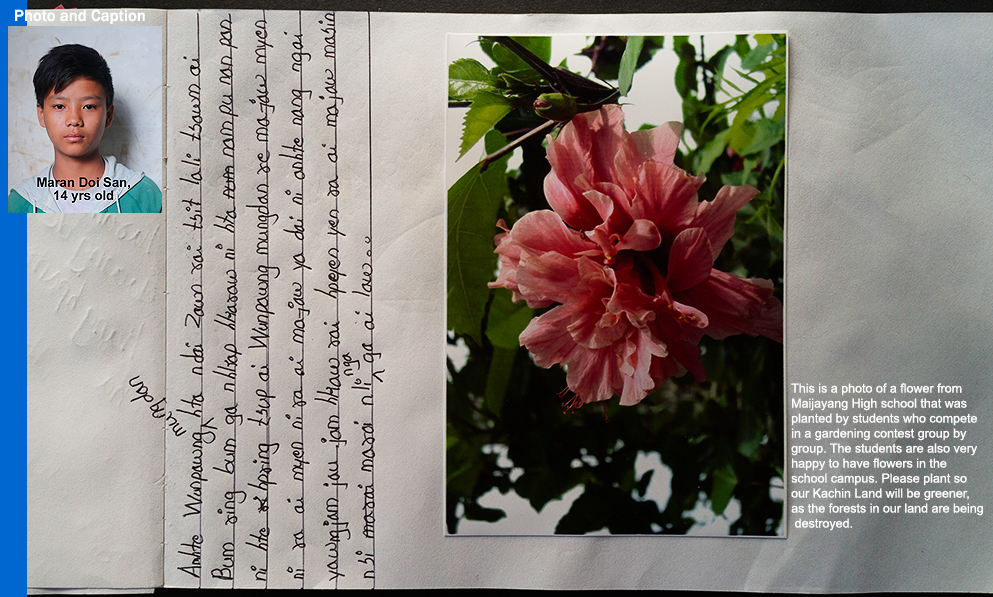 Photo and Caption
Maran Doi San,
14 yrs old
Anhte Wunpawng mungdan hta ndai zawn rai tsit lali tsawm ai
Bum sing bum ga nhtap hkaraw ni hta nampu nam pan
ni hte hpring tsup ai Wunpawng mungdan re majaw myen
ni ra ai myen ni ra ai majaw ya dai ni anhte nang ngai
jau jam hkaw rai hpyen yen ra ai majaw masin
nga ga ai law..
This is a photo of a flower from
Maijayang High school that was
planted by students who compete
in a gardening contest group by
group. The students are also very
happy to have flowers in the
school campus. Please plant so
our Kachin Land will be greener,
as the forests in our land are being
destroyed.